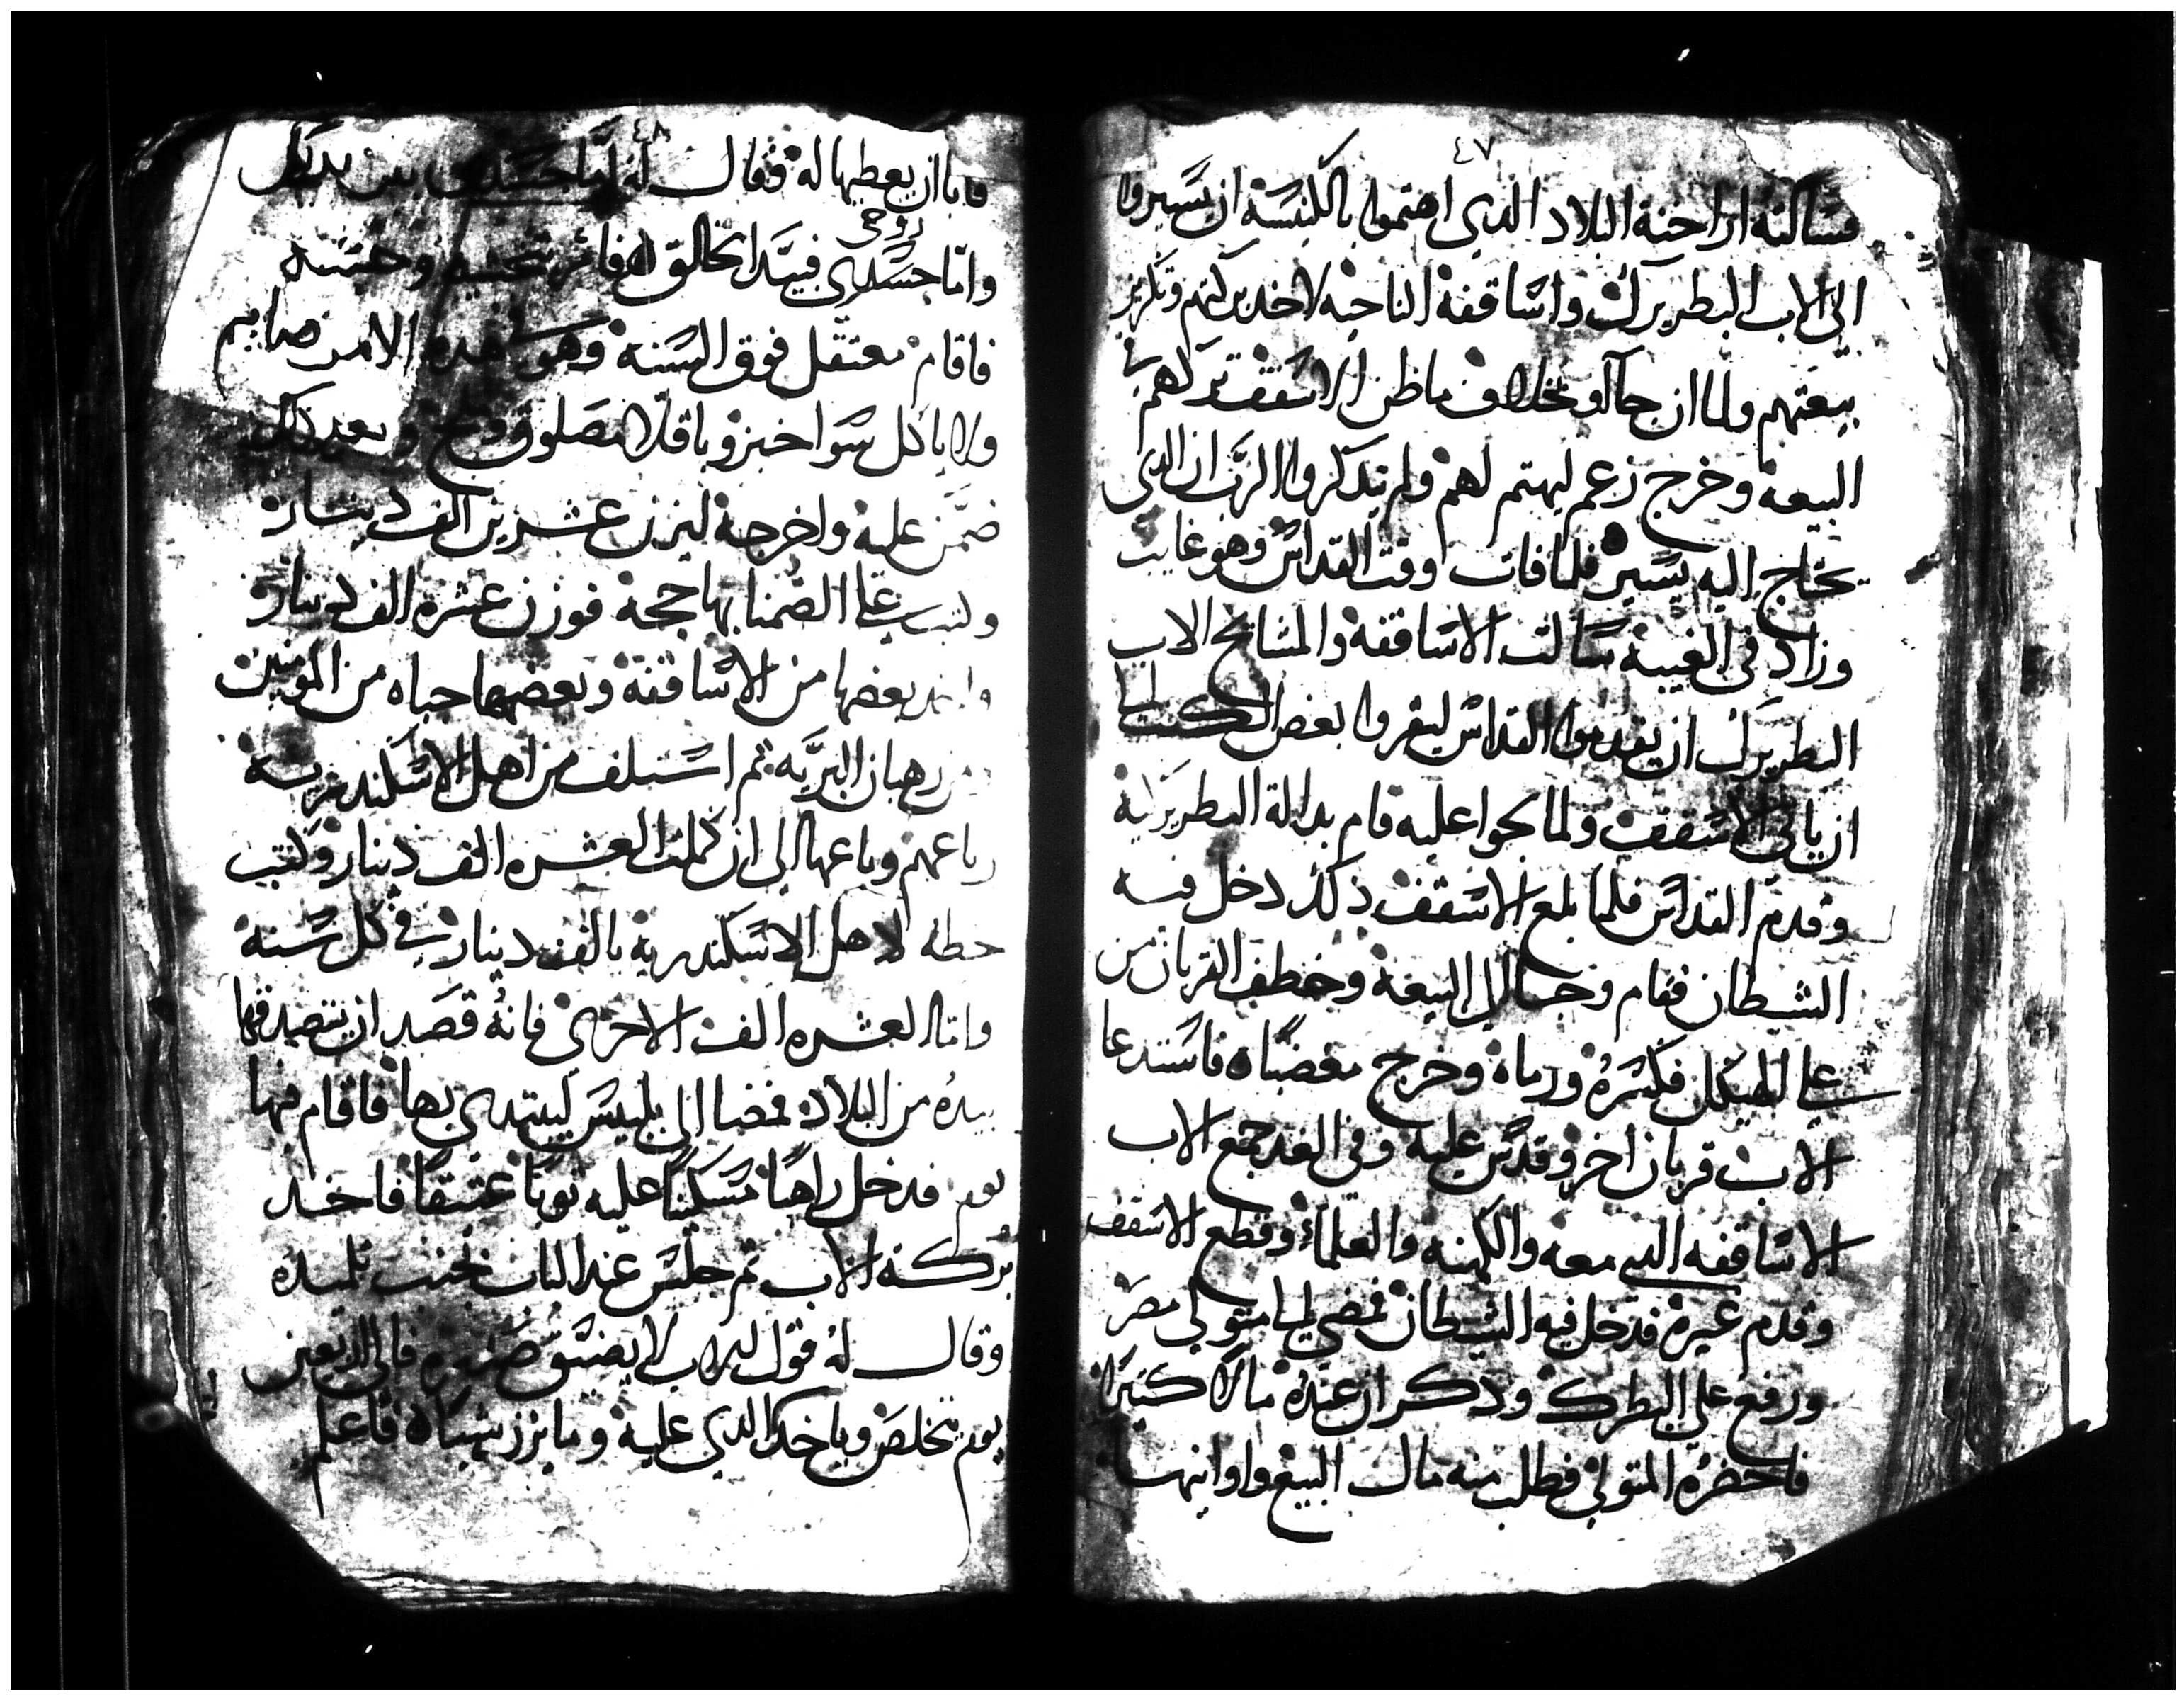 ٤٧
فسالته اراخنة البلاد الدي اهتموا بالكنيسة ان يسيروا
الى الاب البطريرك واساقفة الناحيه لاخد بركتهم وتكريز
بيعتهم ولما ان جاآو بخلاف ما ظن الاسقف تركهم في
البيعة وخرج زعم ليهتم لهم ولم يتدكروا الرب ان الدى
يحتاج اليه يسير فلما فات وقت القداس وهو غايب
وزاد في الغيبة سالت الاساقفة والمشايخ الاب
البطريرك ان يقدموا القداس ليقروا بعض الكتب الى
ان ياتي الاسقف ولما لحوا عليه قام بدالة البطريركية
وقدم القداس فلما بلغ الاسقف دلك دخل فيه
الشيطان فقام وجا الى البيعة وخطف القربان من
على الهيكل فكسره ورماه وخرج مغضبا فاستدعا
الاب قربان اخر وقدس عليه وفي الغد جمع الاب
الاساقفه التي معه والكهنه والعلماء وقطع الاسقف
وقدم غيرة فدخل فيه الشيطان فمضي الى متولي مصر
ورفع علي البطرك ودكر ان عنده مالا كتيرا
فاحضره المتولي فطلب منه مال البيع واوانيها
٤٨
فابا ان يعطيها له فقال له اما جسدي بين يديك
وامّا روحي فبيد الخالق فامر بحبسه
فاقام معتقل فوق السنه وهو هده الامر صايم
ولا ياكل سوا خبز وباقلا مصلوق وملح وبعد دلك
ضمن عليه واخرجه ليزن عشرين الف دينار
وكتب على الضمنا بها حجة فوزن عشرة الف دينار
واخد بعضها من الاساقفة وبعضها جباه من المومنين
ومن رهبان البريّه تم استلف من اهل الاسكندرية
رباعهم وباعها الي ان كملت العشره الف دينار وكتب
خطه لاهل الاسكندرية بالف دينار في كل سنة
وامّا العشره الف الاخرى فانهُ قصد ان يتصدقها
بيده من البلاد فمضا الى بلبيس ليبتدي بها فاقام فيها
يوم فدخل راهبا مسكينا عليه توبا عتيقا فاخد
بركة الاب تم جلس عند الباب بجنب تلميده
وقال له قول للاب لا يضيق صدره فالي اربعين
يوم يتخلص وياخد الدي عليه وما يزن شيا فاعلم